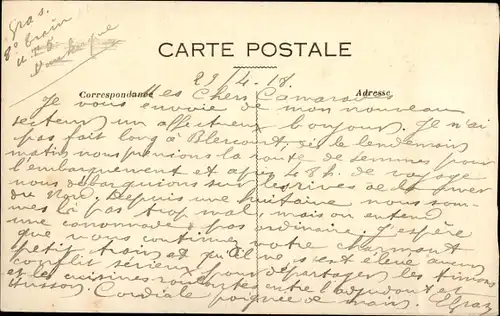 Gras.
8e train
CARTE POSTALE
29/4-18.
Correspondance
Adresse
Mes Chers Camarades
Je vous envoie de mon nouveau
secteur un affectueux bonjour. Je n'ai
pas fait long à Blercourt, le lendemain
matin nous prenions la route de pour
l'embarquement et après 48 h. de voyage
nous débarquions sur les rives de la mer
du Nord. Depuis une huitaine nous som-
mes là pas trop mal, mais on entend
une canonnade pas ordinaire. J'espère
que vous continuez votre charmant
petit train et qu'il ne s'est élevé aucun
conflit sérieux pour départager les
et les cuisines roulantes entre l'adjudant et
Husson. Cordiale poignée de main. EGras